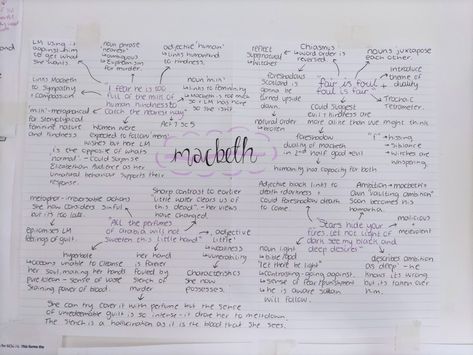 LM using it
against him
to get what
she wants
noun phrase
"nearest"
↳ contagious
↳ Euphemism
for murder.
adjective 'human'
↳ links humankind
to kindness.
Links Macbeth
to sympathy
+ compassion
"I fear he is too
full of the milk of
human kindness to
catch the nearest way"
Act 1 sc 5
noun 'milk'
↳ links to femininity
↳ Macbeth is too nice
so LM has none
so she isn't
"milk" - metaphorical
for stereotypical
feminine nature
and kindness
women were
expected to follow men's
wishes but here LM
is the opposite of what's
normal
Elizabethan Audience as her
unnatural behaviour supports their
response.
reflect
supernatural
↳ witches
Chiasmus
↳ word order is
reversed
nouns juxtapose
each other.
introduce
theme of
duality
"fair is foul
foul is fair"
Trochaic
Tetrameter.
foreshadows
Scotland is
gonna be
turned upside
down
natural order
↳ broken
could suggest
evil + kindness are
more alike than we might think
foreshadow
duality of macbeth
in 2nd half good evil
"f" → hissing
↳ sibilance
↳ witches are
whispering.
humanity has capacity for both
macbeth
metaphor - reversative actions
She now considers sinful
but its too late.
Sharp contrast to earlier
"little water clears us of
this deed" → her views
have changed.
"All the perfumes
of arabia will not
sweeten this little hand"
epitomises LM
feelings of guilt.
adjective
'little'
↳ weakness
↳ vulnerability
characteristics
She now
possesses.
hyperbole
↳ seems unable to cleanse
her soul, making her hands
pure/clean - sense of
staining power of blood
her hand
is forever
fouled by
stench of
murder
She can try cover it with perfume but the sense
of unredeemable guilt is so intense - it drove her to meltdown.
The stench is a hallucination as it is the blood that she sees.
Adjective black links to
death / darkness +
could foreshadow death
to come.
Ambition = macbeth's
own 'vaulting ambition'
soon becomes his
hamartia.
"Stars hide your
fires, let not light
see my black and
deep desires"
malicious
+
malevolent
noun light
↳ bible / God
"let there be light"
↳ contrasting / going against
↳ sense of fear / punishment
↳ he is aware satan
will follow.
describes ambition
as deep → he
knows its wrong
but its taken over
him.